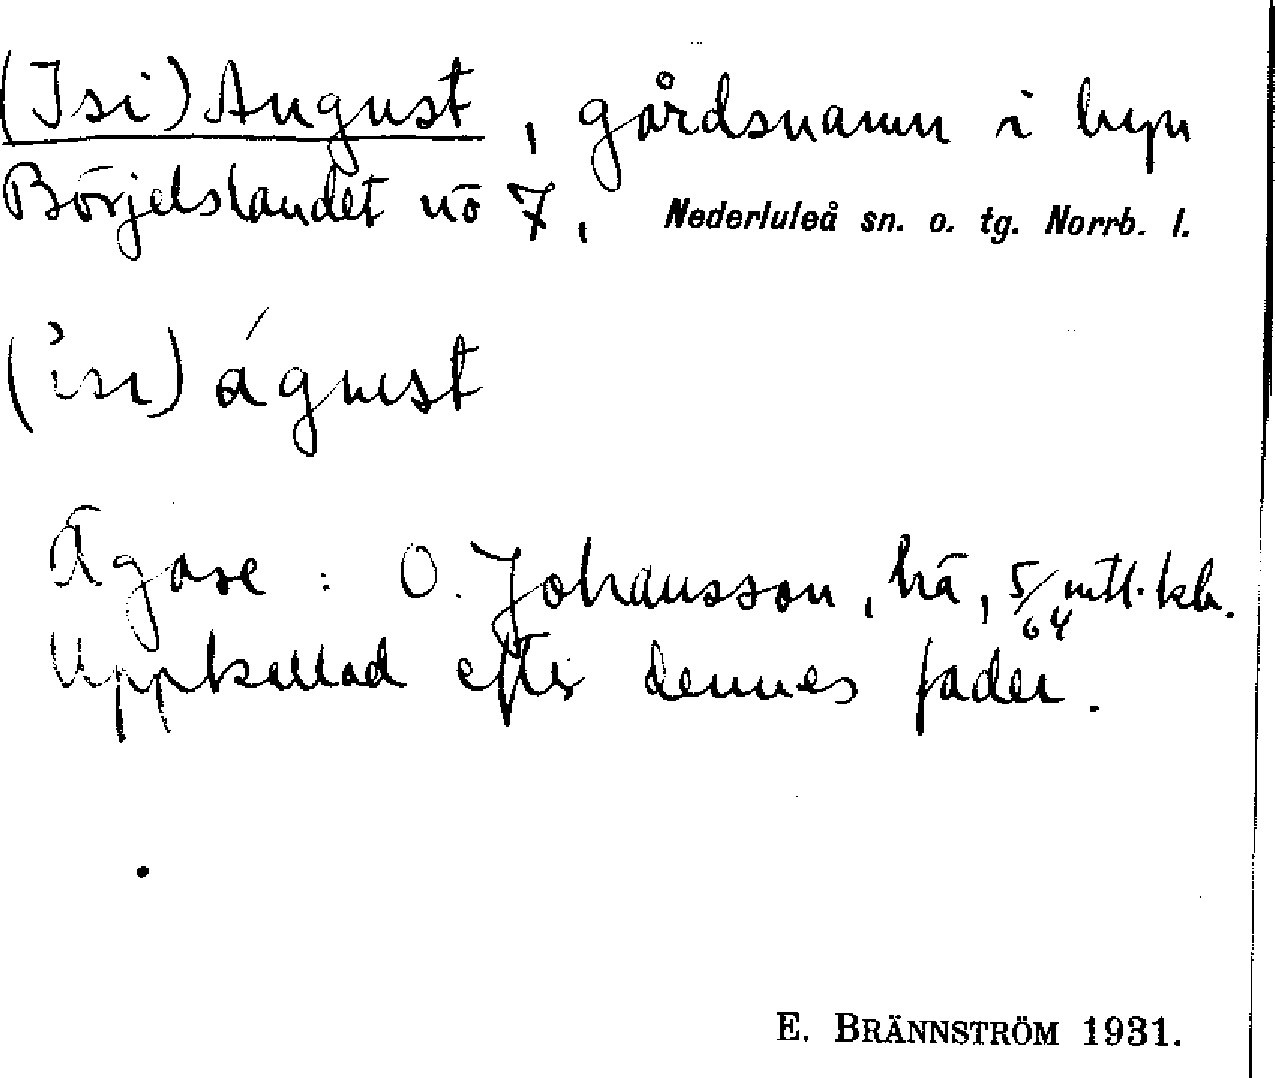 (Isi) August, gårdsnamn i byn
Börjelslandet no 7, Nederluleå sn. o. tg. Norrb. l.
(isi) águst
Ägare: O. Johansson, ha, 5/64 mtl. kr.
Uppkallad efter dennes fader.
E. BRÄNNSTRÖM 1931.